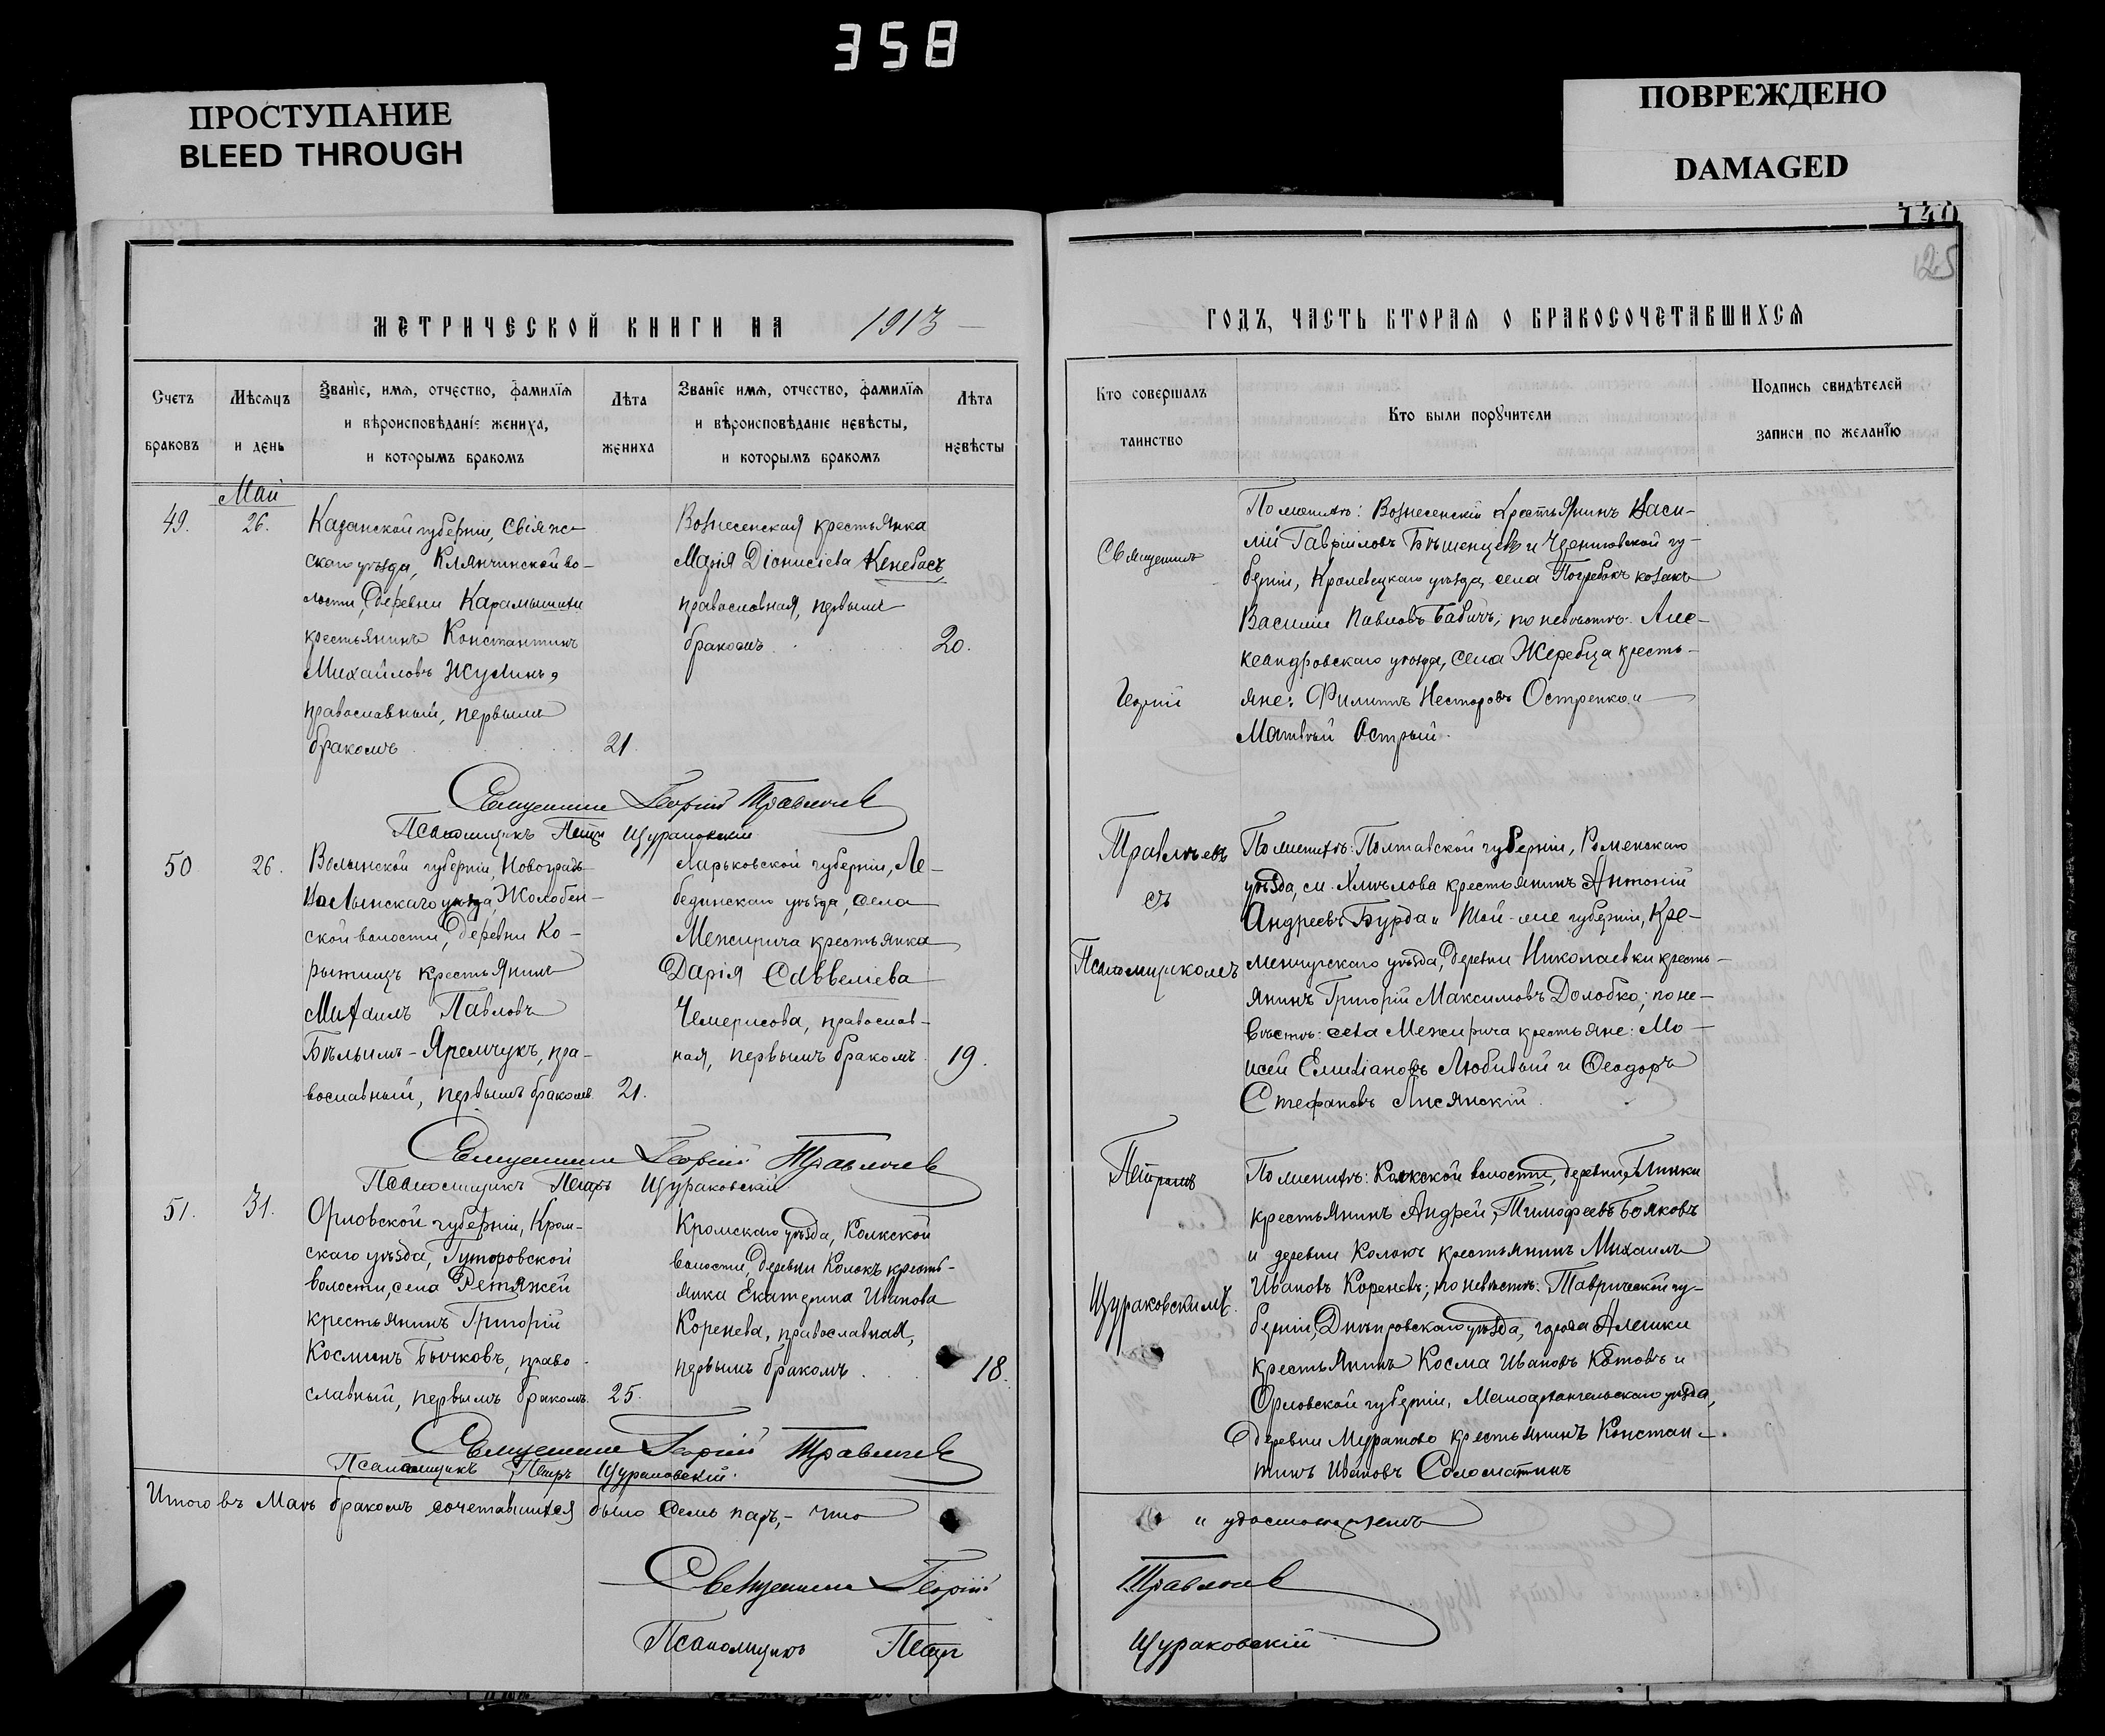 358
ПРОСТУПАНИЕ
BLEED THROUGH
ПОВРЕЖДЕНО
DAMAGED
140
125
МЕТРИЧЕСКОЙ КНИГИ НА 1913
Счетъ
браковъ
Мѣсяцъ
и день
Званіе, имя, отчество, фамилія
и вѣроисповѣданіе жениха,
и которымъ бракомъ
Лѣта
жениха
Званіе имя, отчество, фамилія
и вѣроисповѣданіе невѣсты,
и которымъ бракомъ
Лѣта
невѣсты
Май
49.
26.
Казанской губерніи, Свіяж-
скаго уѣзда, Клянчинской во-
лости, деревни Карамышихи
крестьянинъ Константинъ
Михайловъ Жулинъ,
православный, первымъ
бракомъ
21.
Вознесенская крестьянка
Марія Діонисіева Кенебасъ,
православная, первымъ
бракомъ
20.
Священникъ Георгій Травлѣевъ
Псаломщикъ Петръ Щураковскій
50
26.
Волынской губерніи, Новоградъ-
Волынскаго уѣзда, Жолобен-
ской волости, деревни Ко-
рытищъ крестьянинъ
Михаилъ Павловъ
Бѣлымъ-Яремчукъ, пра-
вославный, первымъ бракомъ.
21.
Харьковской губерніи, Ле-
бединскаго уѣзда, села
Межирича крестьянка
Дарія Савверіева
Чемерисова, православ-
ная, первымъ бракомъ.
19.
Священникъ Георгій Травлѣевъ
Псаломщикъ Петръ Щураковскій
51.
31.
Орловской губерніи, Кром-
скаго уѣзда, Гуторовской
волости, села Ретяжей
крестьянинъ Григорій
Косминъ Бычковъ, право-
славный, первымъ бракомъ.
25.
Кромскаго уѣзда, Колкской
волости, деревни Колокъ кресть-
янка Екатерина Иванова
Коренева, православная,
первымъ бракомъ
18.
Священникъ Георгій Травлѣевъ
Псаломщикъ Петръ Щураковскій.
Итого въ Маѣ бракомъ сочетавшихся было семь паръ,- что
Священникъ Георгій
Псаломщикъ Петръ
ГОДЪ, ЧАСТЬ ВТОРАЯ О БРАКОСОЧЕТАВШИХСЯ
Кто совершалъ
таинство
Кто были поручители
Подпись свидѣтелей
записи по желанію
Священникъ
Георгій
Травлѣевъ
съ
Псаломщикомъ
Петромъ
Щураковскимъ.
По женихѣ: Вознесенскій крестьянинъ Васи-
лій Гавріиловъ Бѣшенцевъ и Черниговской гу-
берніи, Кролевецкаго уѣзда, села Погребокъ козакъ
Василій Павловъ Бабичъ; по невѣстѣ: Але-
ксандровскаго уѣзда, села Жеребца кресть-
яне: Филиппъ Несторовъ Остренко и
Матвѣй Острый.
По женихѣ: Полтавской губерніи, Роменскаго
уѣзда, с. Хмѣлова крестьянинъ Антоній
Андреевъ Бурда и той-же губерніи, Кре-
менчугскаго уѣзда, деревни Николаевки кресть-
янинъ Григорій Максимовъ Долобко; по не-
вѣстѣ: села Межирича крестьяне: Мо-
исей Емиліановъ Любивый и Ѳеодоръ
Стефановъ Лисянскій.
По женихѣ: Колкской волости, деревни
крестьянинъ Андрей Тимофеевъ Бояковъ
и деревни Колокъ крестьянинъ Михаилъ
Ивановъ Кореневъ; по невѣстѣ: Таврической гу-
берніи, Днѣпровскаго уѣзда, города Алешки
крестьянинъ Косма Ивановъ Котовъ и
Орловской губерніи, Малоархангельскаго уѣзда,
деревни Муратово крестьянинъ Констан-
тинъ Ивановъ Соломатинъ
и удостовѣряемъ
Травлѣевъ
Щураковскій